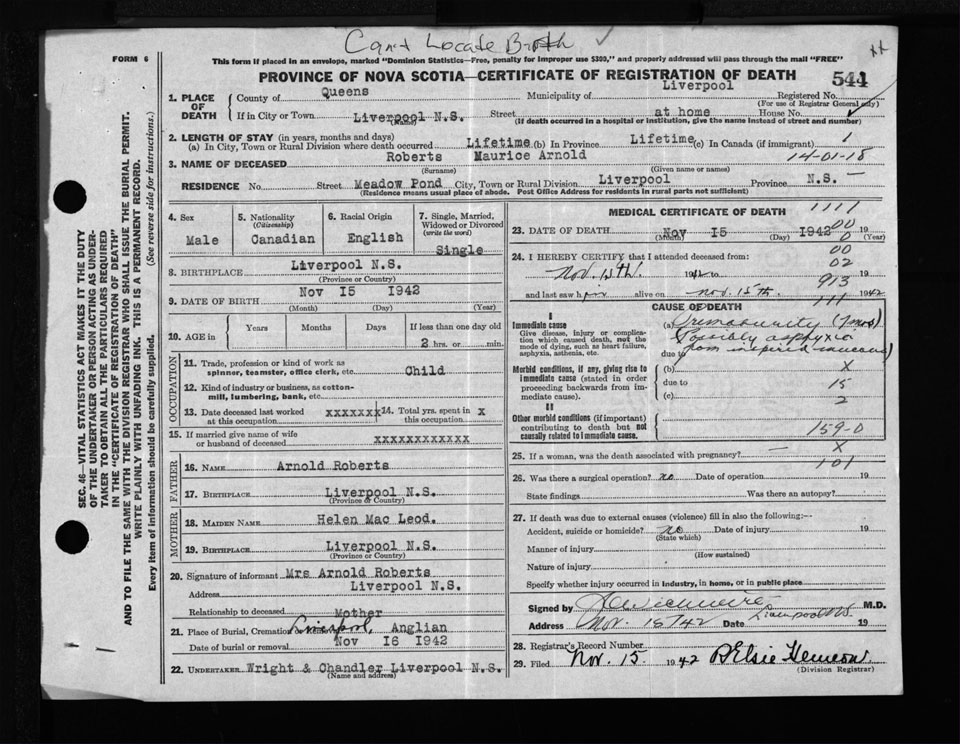 Cant Locate Birth ✓
FORM 6
This form if placed in an envelope, marked "Dominion Statistics—Free, penalty for improper use $300," and properly addressed will pass through the mail "FREE"
PROVINCE OF NOVA SCOTIA—CERTIFICATE OF REGISTRATION OF DEATH
544
1. PLACE OF DEATH
County of Queens Municipality of Liverpool Registered No.
(For use of Registrar General only)
If in City or Town Liverpool N.S. Street at home House No.
(Name) (If death occurred in a hospital or institution, give the name instead of street and number)
2. LENGTH OF STAY (in years, months and days)
(a) In City, Town or Rural Division where death occurred Lifetime (b) In Province Lifetime (c) In Canada (if immigrant) 1
14-01-18
3. NAME OF DECEASED Roberts Maurice Arnold
(Surname) (Given name or names)
RESIDENCE No. Street Meadow Pond City, Town or Rural Division Liverpool Province N.S. —
(Residence means usual place of abode. Post Office Address for residents in rural parts not sufficient)
4. Sex
Male
5. Nationality
(Citizenship)
Canadian
6. Racial Origin
English
7. Single, Married, Widowed or Divorced
(write the word)
Single
8. BIRTHPLACE Liverpool N.S.
(Province or Country)
9. DATE OF BIRTH Nov 15 1942
(Month) (Day) (Year)
10. AGE in
Years Months Days If less than one day old
2 hrs. or min.
OCCUPATION
11. Trade, profession or kind of work as
spinner, teamster, office clerk, etc. Child
12. Kind of industry or business, as cotton-
mill, lumbering, bank, etc.
13. Date deceased last worked
at this occupation xxxxxxx
14. Total yrs. spent in
this occupation X
15. If married give name of wife
or husband of deceased xxxxxxxxxxxx
FATHER
16. NAME Arnold Roberts
17. BIRTHPLACE Liverpool N.S.
(Province or Country)
MOTHER
18. MAIDEN NAME Helen Mac Leod.
19. BIRTHPLACE Liverpool N.S.
(Province or Country)
20. Signature of informant Mrs Arnold Roberts
Address Liverpool N.S.
Relationship to deceased Mother
21. Place of Burial, Cremation Liverpool, Anglian
Date of burial or removal Nov 16 1942
22. UNDERTAKER Wright & Chandler Liverpool N.S.
(Name and address)
MEDICAL CERTIFICATE OF DEATH
1111
23. DATE OF DEATH Nov 15 1942 19
(Month) (Day) (Year)
00
0
24. I HEREBY CERTIFY that I attended deceased from:
00
02
Nov. 15th. 19 to 19
913
and last saw h alive on Nov. 15th. 1942
111
CAUSE OF DEATH
I
Immediate cause
Give disease, injury or complica-
tion which caused death, not the
mode of dying, such as heart failure,
asphyxia, asthenia, etc.
(a) Prematurity (7mos)
Possibly asphyxia
due to from inspired mucous
Morbid conditions, if any, giving rise to
immediate cause (stated in order
proceeding backwards from im-
mediate cause).
(b) X
due to 15
(c) 2
II
Other morbid conditions (if important)
contributing to death but not
causally related to immediate cause.
159-0
25. If a woman, was the death associated with pregnancy? — X
101
26. Was there a surgical operation? no Date of operation 19
State findings Was there an autopsy?
27. If death was due to external causes (violence) fill in also the following:—
Accident, suicide or homicide? no Date of injury 19
(State which)
Manner of injury
(How sustained)
Nature of injury
Specify whether injury occurred in industry, in home, or in public place
Signed by M.D.
Address Nov. 15/42 Date Liverpool N.S. 19
28. Registrar's Record Number
29. Filed Nov. 15. 1942
(Division Registrar)
SEC. 46—VITAL STATISTICS ACT MAKES IT THE DUTY
OF THE UNDERTAKER OR PERSON ACTING AS UNDER-
TAKER TO OBTAIN ALL THE PARTICULARS REQUIRED
IN THE "CERTIFICATE OF REGISTRATION OF DEATH"
AND TO FILE THE SAME WITH THE DIVISION REGISTRAR WHO SHALL ISSUE THE BURIAL PERMIT.
WRITE PLAINLY WITH UNFADING INK. THIS IS A PERMANENT RECORD.
Every item of information should be carefully supplied. (See reverse side for instructions.)